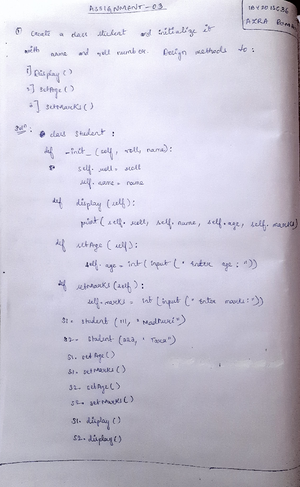 ASSIGNMENT-03
AZRA
① Create a class student and initialize it
with name and roll number. Design methods to :
i] Display ( )
ii] SetAge ( )
iii] SetMarks ( )
class Student :
def _init_ ( self , roll, name):
self. roll = roll
self. name = name
def display (self) :
print ( self. roll, self. name, self. age, self. marks)
def setAge ( self) :
self. age = int ( input ( " enter age : "))
def setMarks (self) :
self. marks = int (input ( " Enter marks : "))
S1 = Student ( 111, " Madhuri ")
S2 = Student ( 222, " Tara ")
S1. setAge ( )
S1. setMarks ( )
S2. setAge ( )
S2. setMarks ( )
S1. display ( )
S2. display ( )